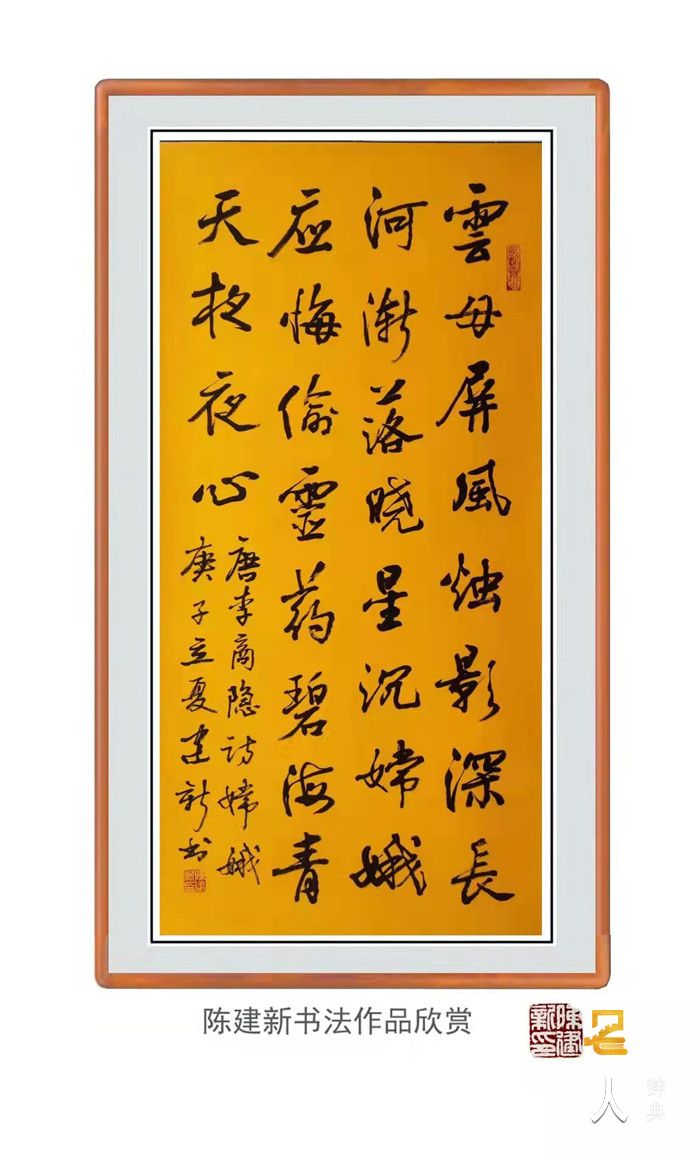 雲母屏風烛影深長
河漸落晓星沉嫦娥
应悔偷靈药碧海青
天夜夜心
唐李商隐诗嫦娥
庚子立夏建新书
陈建新书法作品欣赏
陈建新印
名人
辞典